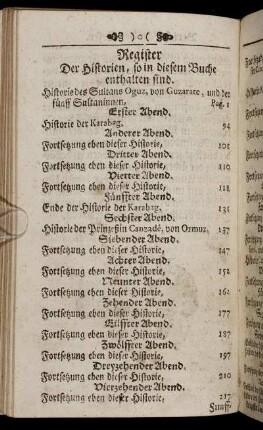 ) o (
Register
Der Historien, so in diesem Buche
enthalten sind.
Historie des Sultans Oguz, von Guzarate, und der
fünff Sultaninnen, Pag. 1
Erster Abend.
Historie der Karabag. 94
Anderer Abend.
Fortsetzung eben dieser Historie, 101
Dritter Abend.
Fortsetzung eben dieser Historie, 110
Vierter Abend.
Fortsetzung eben dieser Historie, 118
Fünffter Abend.
Ende der Historie der Karabag. 131
Sechster Abend.
Historie der Prinzeßin Canzadé, von Ormuz, 137
Siebender Abend.
Fortsetzung eben dieser Historie, 147
Achter Abend.
Fortsetzung eben dieser Historie, 152
Neunter Abend.
Fortsetzung eben dieser Historie, 162
Zehender Abend.
Fortsetzung eben dieser Historie, 177
Eilffter Abend.
Fortsetzung eben dieser Historie, 187
Zwölffter Abend.
Fortsetzung eben dieser Historie, 197
Dreyzehender Abend.
Fortsetzung eben dieser Historie, 210
Vierzehender Abend.
Fortsetzung eben dieser Historie, 217
Funff-